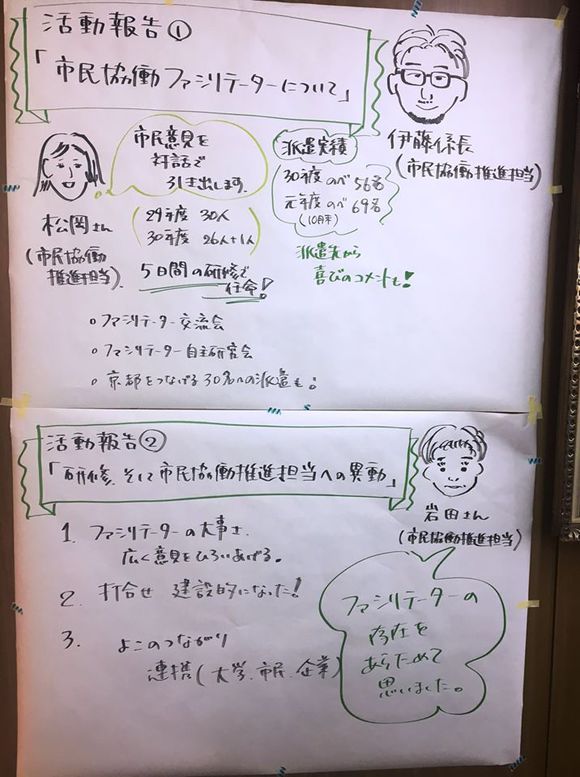 活動報告①
「市民協働ファシリテーターについて」
伊藤係長
(市民協働推進担当)
市民意見を
対話で
引き出します。
松岡さん
(市民協働
推進担当)
(29年度 30人
30年度 26人+1人)
5日間の研修で
任命!
派遣実績
30年度のべ56名
元年度のべ69名
(10月末)
派遣先から
喜びのコメントも!
○ファシリテーター交流会
○ファシリテーター自主研究会
○京都をつなげる30名への派遣も!
活動報告②
「研修、そして市民協働推進担当への異動」
岩田さん
(市民協働推進担当)
1. ファシリテーターの大事さ、
広く意見をひろいあげる。
2. 打合せ 建設的になった!
3. よこのつながり
連携(大学、市民、企業)
ファシリテーターの
存在を
あらためて
思いました。